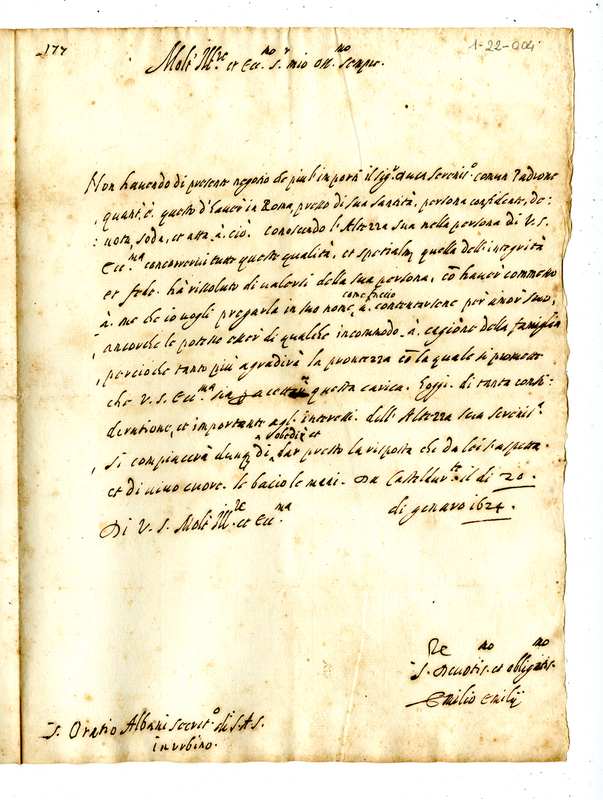 177
1-22-004
Molt' Ill.re et Ecc.mo s.r mio oss.mo semper.
Non hauendo di presente negotio che piu l'importi il sig.r Duca Seren.o comun Padrone
quant'è questo d'hauer in Roma, presso di sua santità, persona confidente, de:
: uota, soda, et atta à ciò. conoscendo l'Altezza sua nella persona di V.S.
Ecc.ma concorrerui tutte queste qualità, et spetialm. quella dell'integrità
et fede. hà risoluto di ualersi della sua persona, cõ hauer commesso
à me che io uogli pregarla in suo nome, come faccio à contentarsene per amor suo,
ancorche le potesse esser di qualche incommodo à cagione della famiglia
percioche tanto più agradirà la prontezza cõ la quale si promette
che V.S. Ecc.ma sia p accettar questa carica. Hoggi di tanta consi:
deratione, et importante agl' interessi dell'Altezza sua Seren.
Si compiacerà dunq di solecita et dar presto la risposta che da lei s'aspetta
et di uiuo cuore le bacio le mani. Da Casteldur.te il di 20.
di genaro 1624.
Di V.S. Molt' Ill.re et Ecc.ma
S.re Deuotis.mo et obligatis.mo
Emilio Emilij
S. Oratio Albani secret.o di S.A.S.
in urbino.